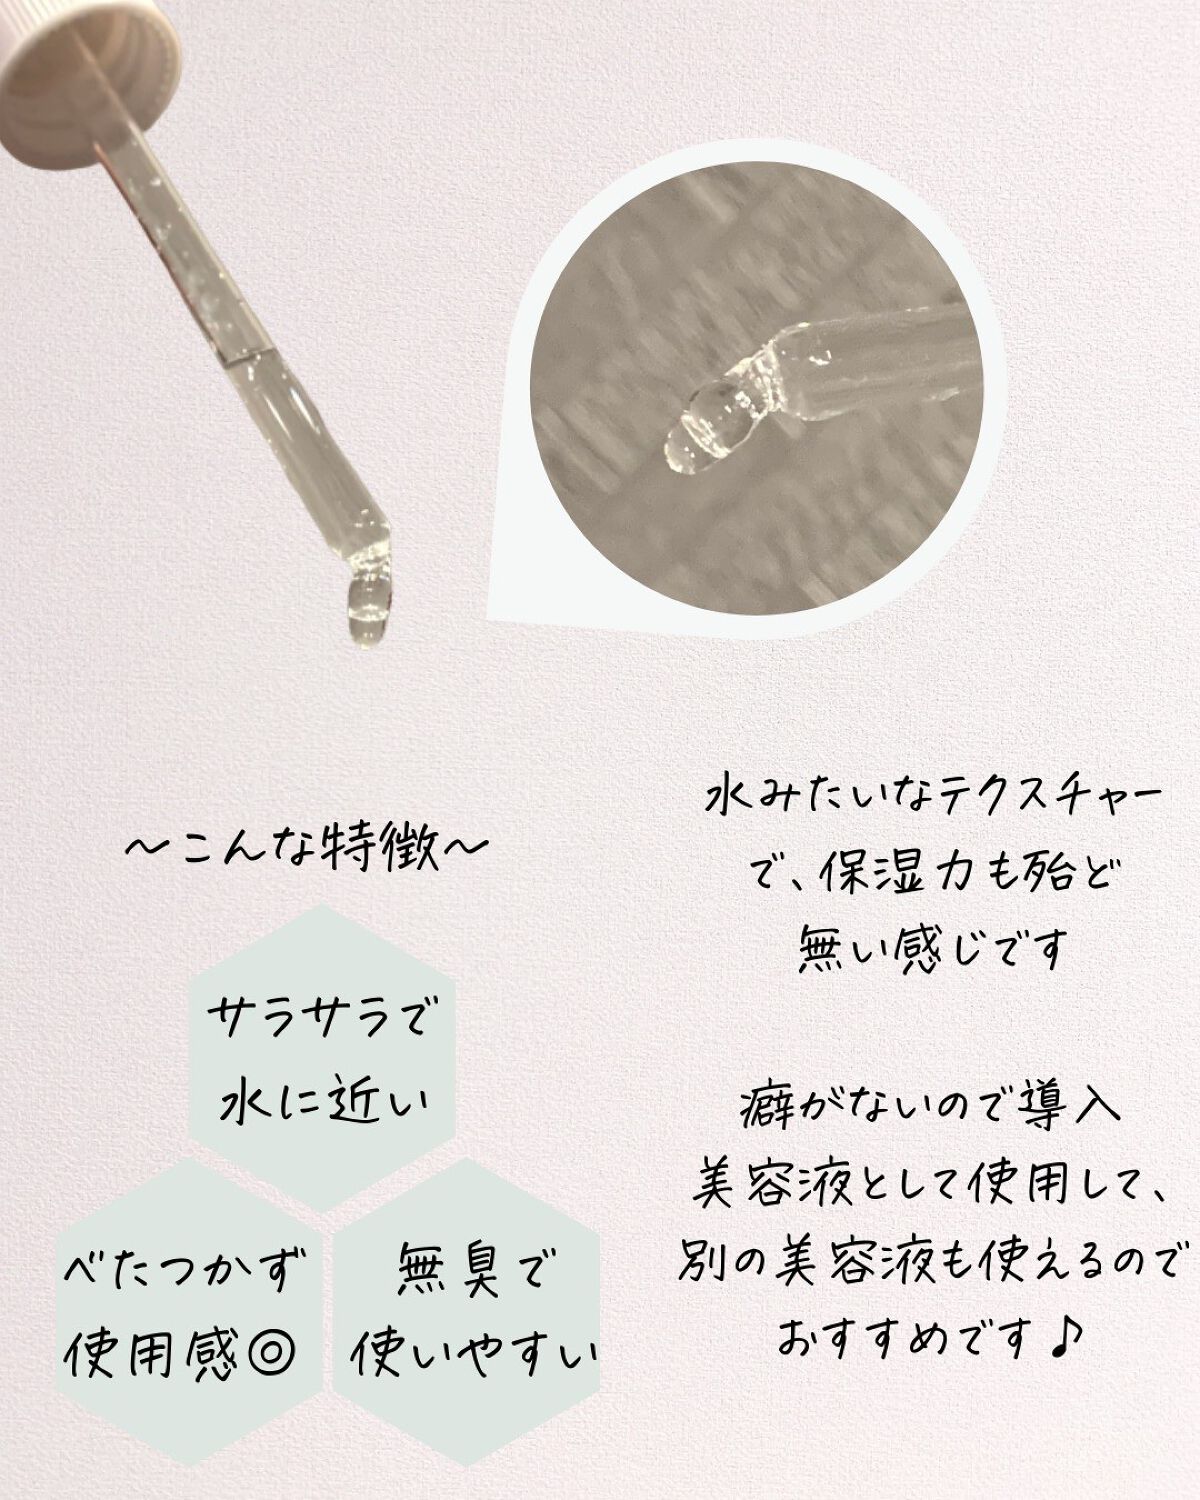 ～こんな特徴～
サラサラで
水に近い
べたつかず
使用感◎
無臭で
使いやすい
水みたいなテクスチャー
で、保湿力も殆ど
無い感じです
癖がないので導入
美容液として使用して、
別の美容液も使えるので
おすすめです♪